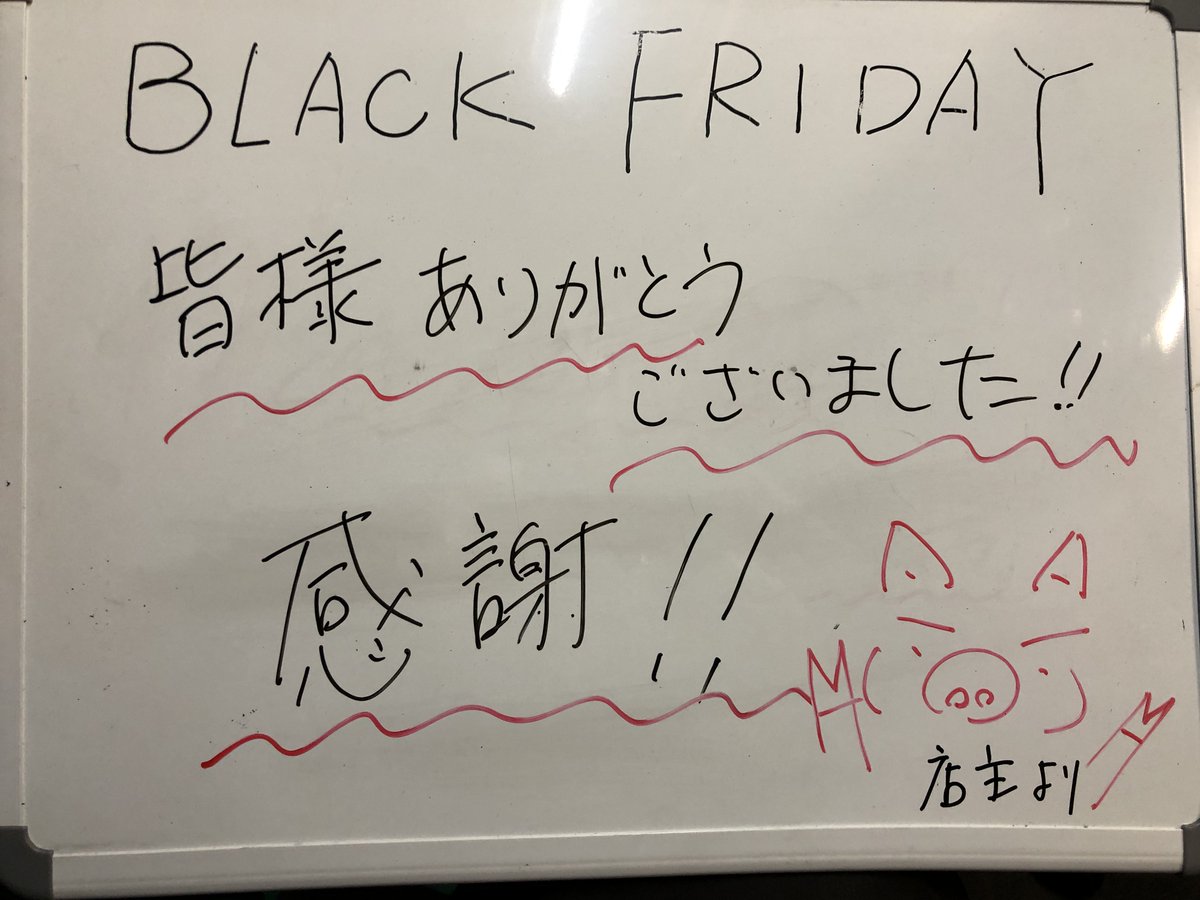 BLACK FRIDAY
皆様 ありがとう
ございました!!
感謝!!
店主より